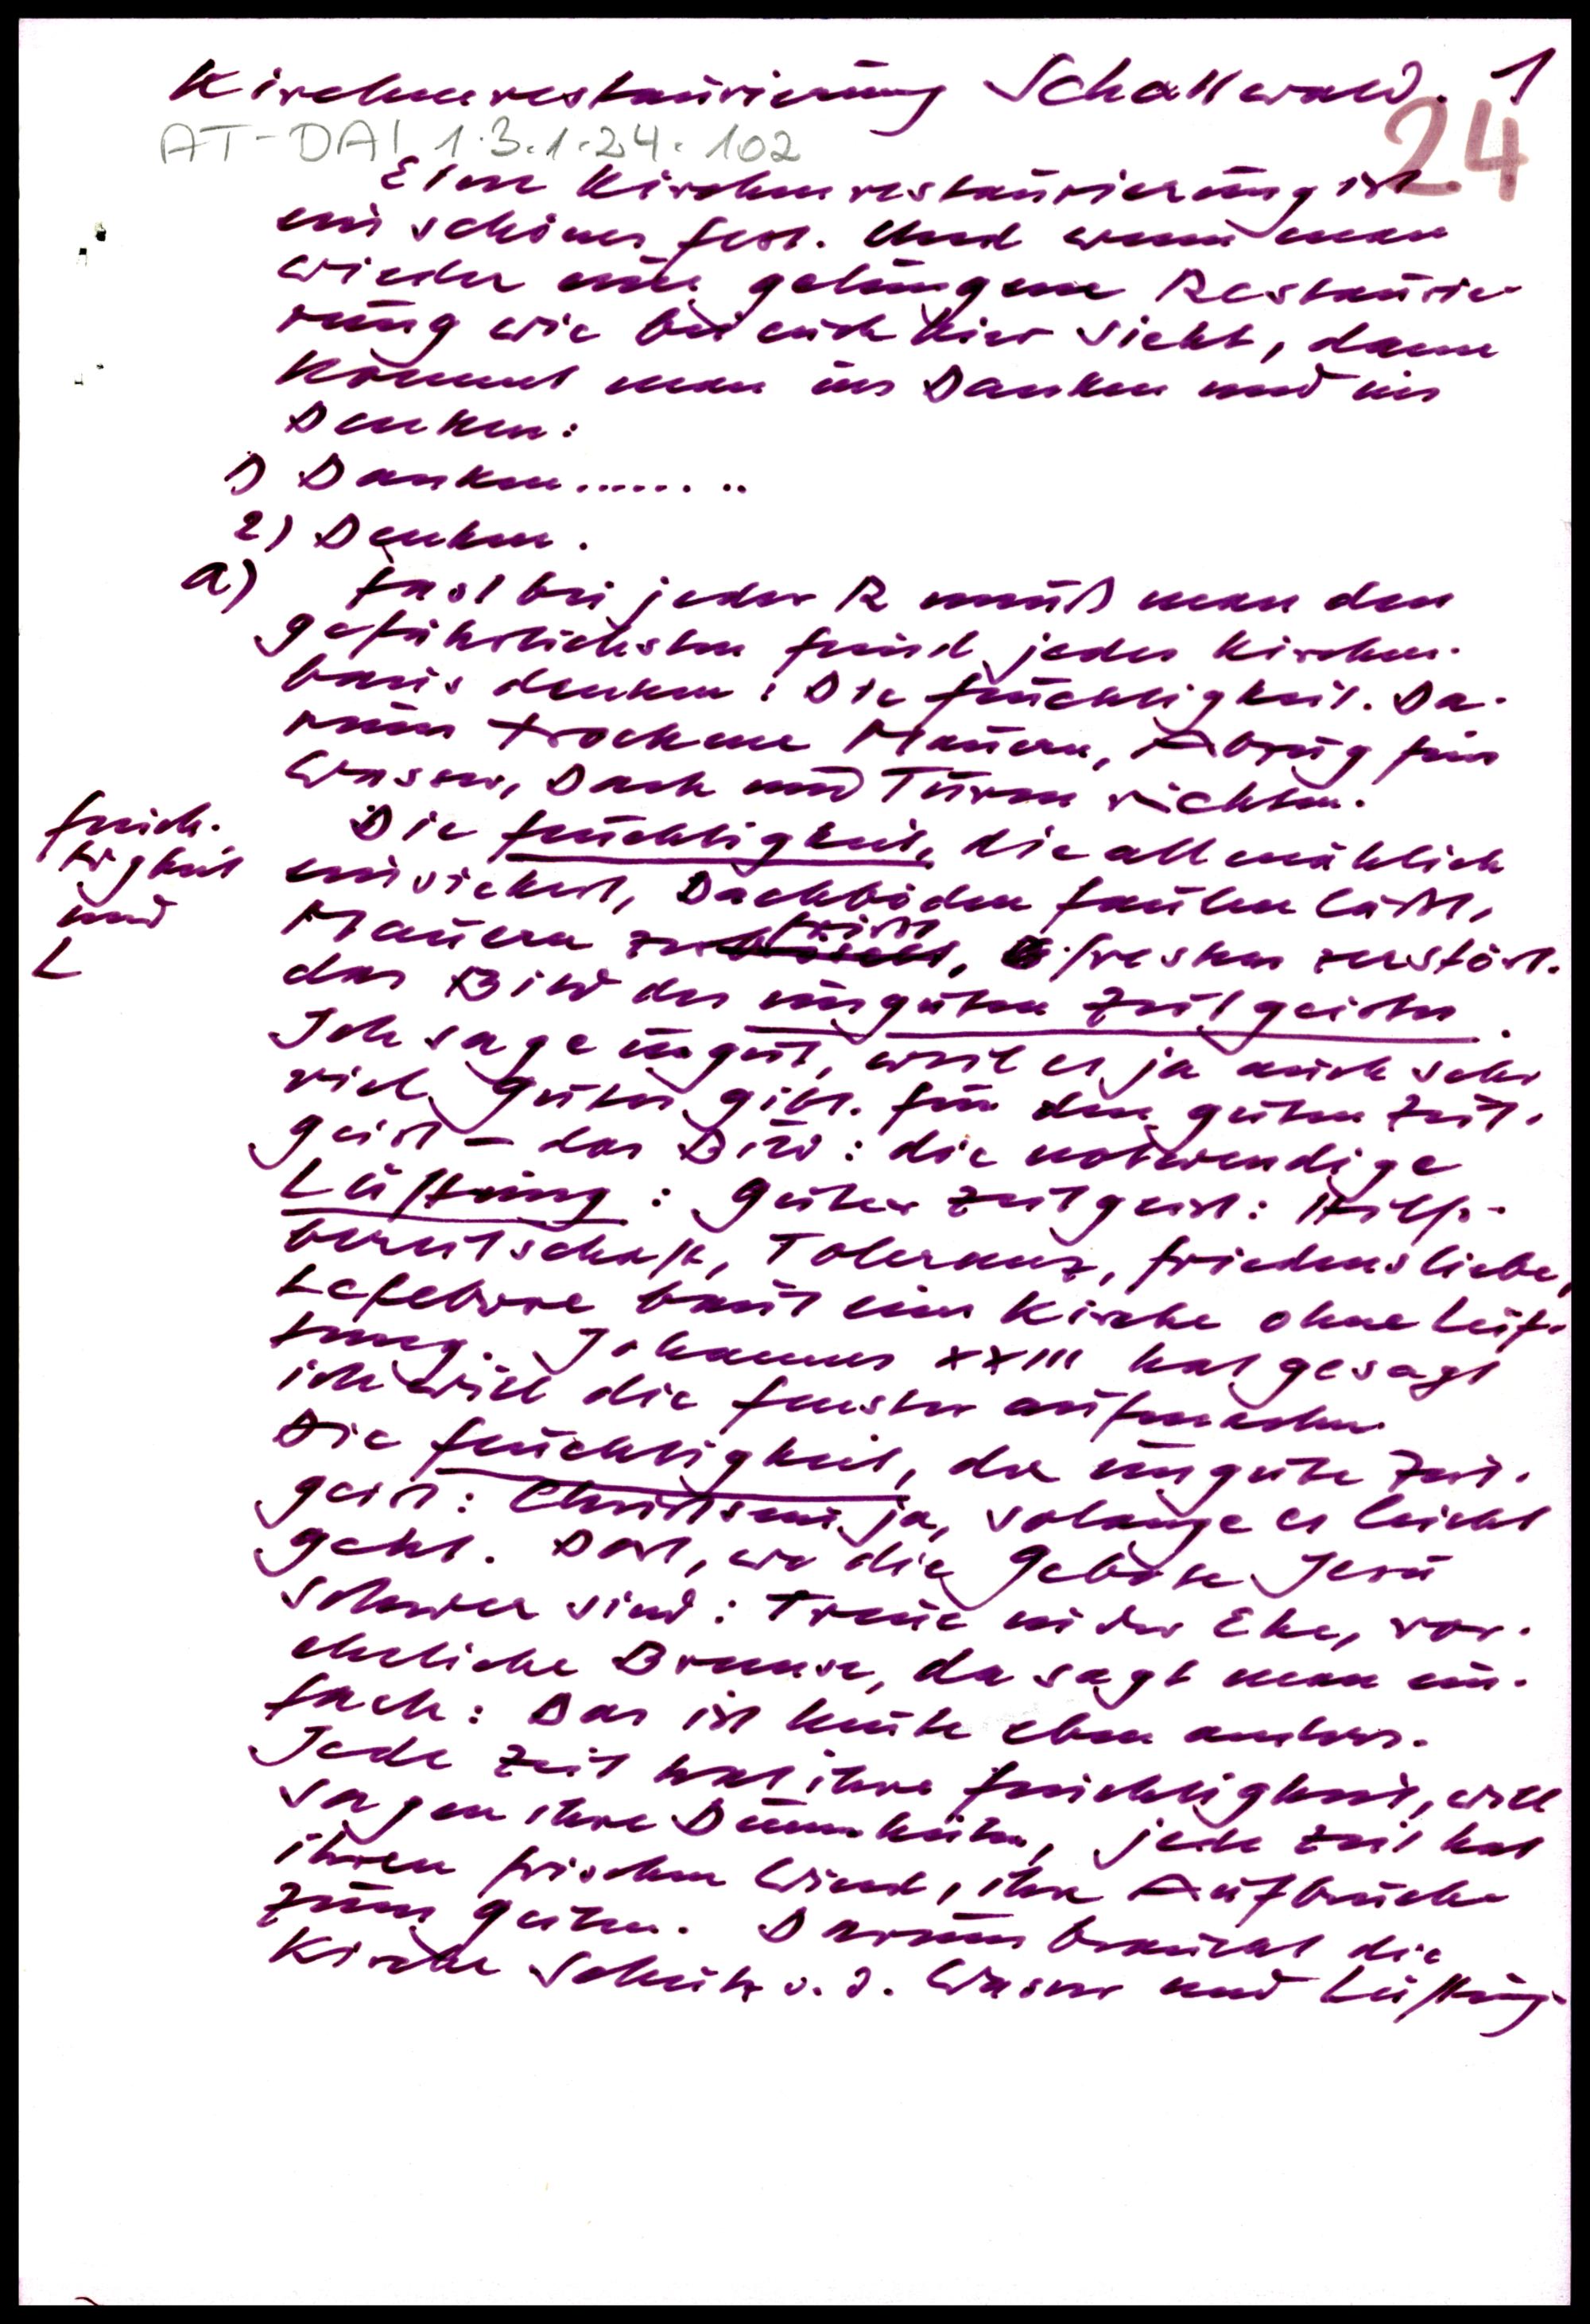 Kirchenrestaurierung Schallwald. 1
AT-DAI 1.3.1.24.102
24
Eine Kirchenrestaurierung ist
ein schönes Fest. Und wenn man
wieder eine gelungene Restaurie-
rung wie bei euch hier sieht, dann
kommt man ins Danken und ins
Denken:
1) Danken........
2) Denken.
a) Fast bei jeder R muß man den
gefährlichsten Feind jedes Kirchen-
baus denken: Die Feuchtigkeit. Da-
rum trockene Mauern, Abzug fürs
Wasser, Dach und Turm richten.
Feuch-
tigkeit
und
L
Die Feuchtigkeit, die allmählich
einsickert, Dachböden faulen läßt,
Mauern zerfrisst, Fresken zerstört.
das Bild des unguten Zeitgeistes.
Ich sage ungut, weil es ja auch sehr
viel Gutes gibt. Für den guten Zeit-
geist - das Bild: die notwendige
Lüftung: Guter Zeitgeist: Hilfs-
bereitschaft, Toleranz, Friedensliebe,
Lefebvre baut eine Kirche ohne Lüf-
tung. Johannes XXIII hat gesagt
ich will die Fenster aufmachen
Die Feuchtigkeit, der ungute Zeit-
geist: Christsein ja, solange es leicht
geht. Dort, wo die Gebote Jesu
schwer sind: Treue in der Ehe, vor-
eheliche Bremse, da sagt man ein-
fach: Das ist heute eben anders.
Jede Zeit hat ihre Feuchtigkeit, will
sagen ihre Dummheiten, jede Zeit hat
ihren frischen Wind, ihre Aufbrüche
zum guten. Darum braucht die
Kirche Schutz v. d. Wasser und Lüftung